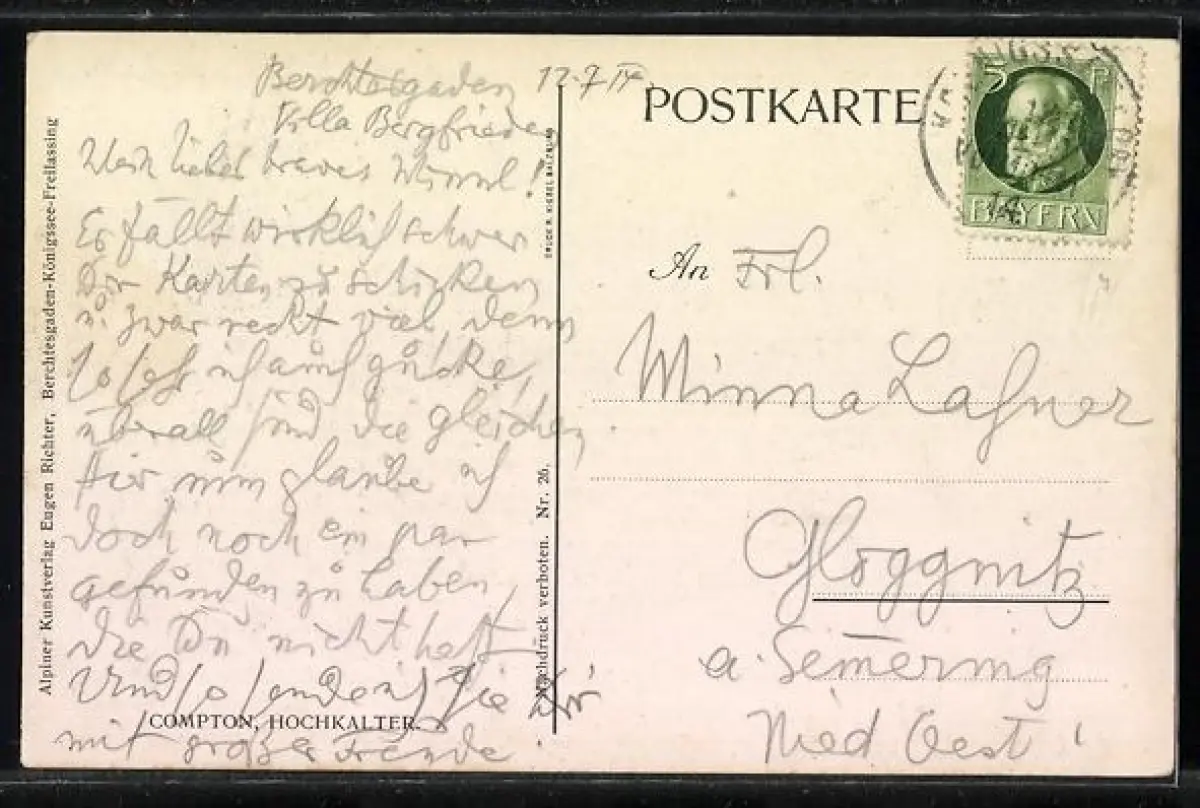 Berchtesgaden 12.7.14
Villa Bergfrieden
Mein liebes braves Minnel!
Es fällt wirklich schwer
Dir Karten zu schicken
u. zwar recht viel, denn
wo ich auch gucke,
überall sind die gleichen.
Hier nun glaube ich
doch noch ein par
gefunden zu haben,
die Du nicht hast
Und so sende ich sie Dir
mit großer Freude.
COMPTON, HOCHKALTER.
Alpiner Kunstverlag Eugen Richter, Berchtesgaden-Königssee-Freilassing
Nachdruck verboten. Nr. 26.
POSTKARTE
5 P
BAYERN
An Frl.
Minna Lahner
Gloggnitz
a. Semering
Nied Oest